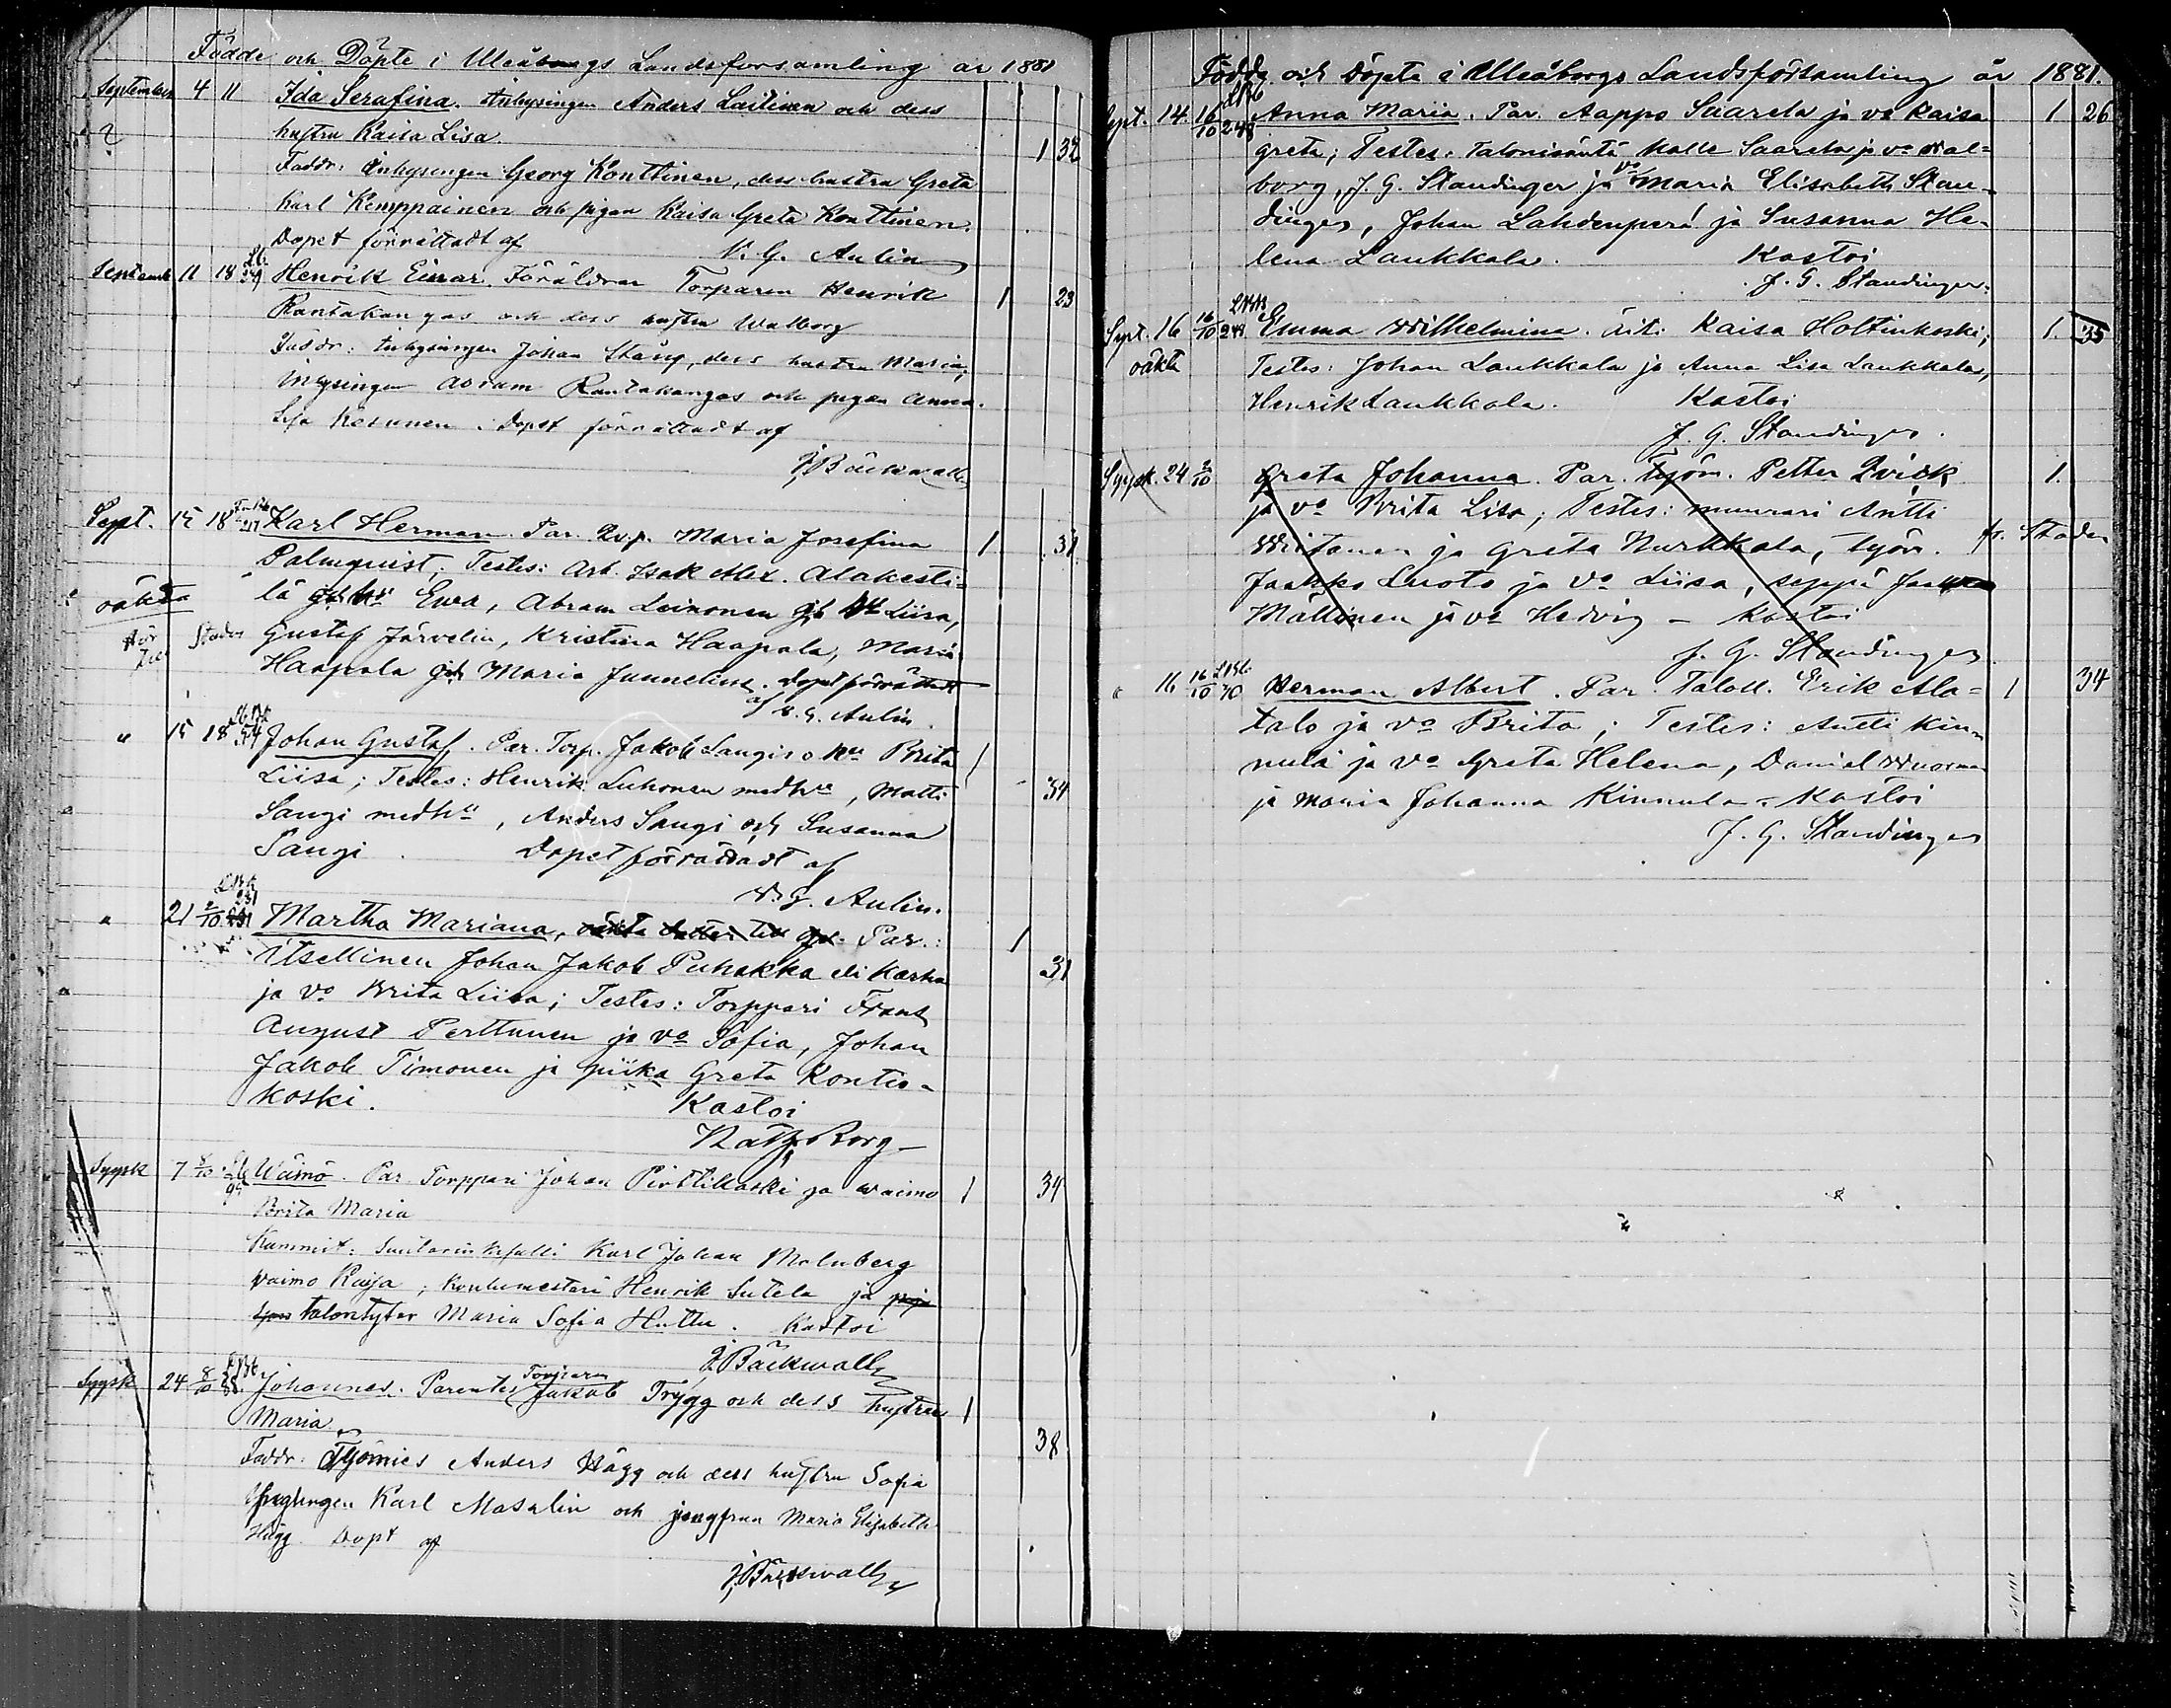 Födde och Döpte i Uleåborgs Landsforsamling år 1881
September 4 11 Ida Serafina. Inhysingen Anders Laitinen och dess
hustru Kaisa Lisa. 1 32
Faddr: Inhysingen Georg Konttinen, dess hustru Greta
Karl Kemppainen och pigan Kaisa Greta Konttinen.
Dopet förrättadt af
V. G. Aulin
September 11 18 Henrik Einar. Föräldrar Torparen Henrik 1 23
Rantakangas och dess hustru Walborg
Faddr: Inhysingen Johan Stång, dess hustru Maria,
Inhysingen Abram Rantakangas och pigan Anna
Lisa Kesunen. Dopet förrättadt af
J. Bäckwall
Sept. 15 18 217 Karl Herman. Par. Maria Josefina 1 31
Palmquist; Testes: Arb. Isak Alex. Alakesti-
oäkta lä Ewa, Abram Leinonen Liisa,
Staden Gustaf Järvelin, Kristina Haapala, Maria
Haapala Maria Junnelius. Dopet förrättadt
af V. G. Aulin.
" 15 18 54 Johan Gustaf. Par. Torp. Jakob Sangi o hu Brita 1
Liisa; Testes: Henrik Luhonen med hu, Matti 34
Sangi med hu, Anders Sangi och Susanna
Sangi. Dopet förrättadt af
V. G. Aulin.
" 21 2/10 231 Martha Mariana, oäkta dotter till Par.: 1
itsellinen Johan Jakob Puhakka eli Karhu 31
ja vo Brita Liisa; Testes: Torppari Frans
August Perttunen ja vo Sofia, Johan
Jakob Timonen ja piika Greta Kontio-
koski. Kastoi
Nath. Borg
Syysk 7 8/10 95 Wäinö. Par Torppari Johan Pirttikoski ja waimo 1 34
Brita Maria
Kummit: Karl Johan Malmberg
vaimo Kaija; Henrik Sutela ja
talontytär Maria Sofia Huttu. Kastoi
J. Bäckwall
Syysk 24 8/10 88. Johannes. Parentes Torparen Jakob Trygg och dess hustru 1
Maria 38
Faddr. Työmies Anders Hägg och dess hustru Sofia
Ynglingen Karl Masalin och jungfrun Maria Elisabeth
Hägg. Dopt af
J. Bäckwall
Födda och Döpta i Uleåborgs Landsförsamling år 1881.
Sept. 14. 16/10 248 Anna Maria. Par. Aappo Saarela ja vo Kaisa 1 26
Greta; Testes: Talonisäntä Kalle Saarela ja vo Wal-
borg, J. G. Standinger ja vo Maria Elisabeth Stan-
dinger, Johan Lahdenperä ja Susanna He-
lena Laukkala. Kastoi
J. G. Standinger.
Sept. 16 16/10 248. Emma Wilhelmina. Äiti Kaisa Holtinkoski; 1. 35
oäkta Testes: Johan Laukkala ja Anna Lisa Laukkala,
Henrik Laukkala. Kastoi
J. G. Standinger.
Syysk. 24 2/10 Greta Johanna. Par. työm. Petter Qvick 1.
ja vo Brita Lisa; Testes: muurari Antti
Wiitanen ja Greta Nurkkala, työm. fr. Staden
Jaakko Luoto ja vo Liisa, seppä Jaakko
Mällinen ja vo Hedvig – Kastoi
J. G. Standinger
" 16 16/10 70 Herman Albert. Par. Taloll. Erik Ala- 1 34
talo ja vo Brita; Testes: Antti Kin-
nula ja vo Greta Helena, Daniel Wuorma
ja Maria Johanna Kinnula. – Kastoi
J. G. Standinger